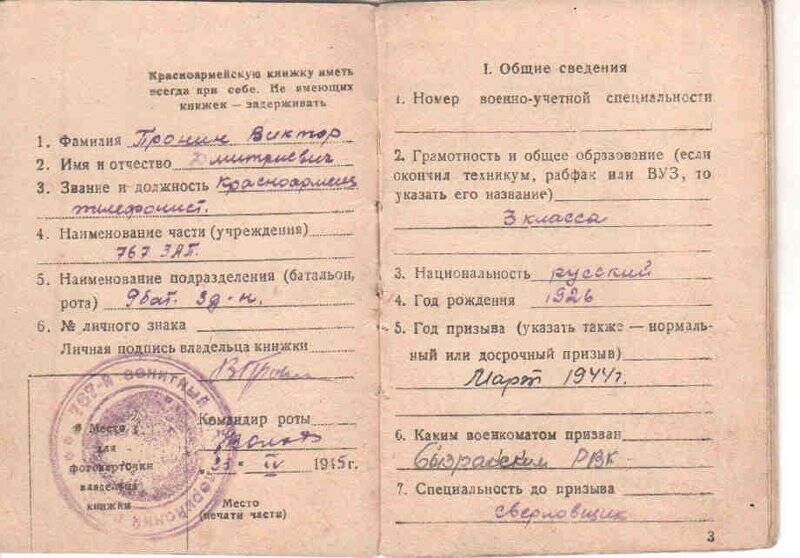 Красноармейскую книжку иметь
всегда при себе. Не имеющих
книжек — задерживать
1. Фамилия Пронин Виктор
2. Имя и отчество Дмитриевич
3. Звание и должность Красноармеец
телефонист.
4. Наименование части (учреждения)
767 ЗАП.
5. Наименование подразделения (батальон,
рота) 9бат. 3д-н.
6. № личного знака
Личная подпись владельца книжки
В Прон
Место
для
фотокарточки
владельца
книжки
767-й зенитный
Командир роты
25 IV 1945г.
Место
(печати части)
I. Общие сведения
1. Номер военно-учетной специальности
2. Грамотность и общее образование (если
окончил техникум, рабфак или ВУЗ, то
указать его название)
3 класса
3. Национальность русский
4. Год рождения 1926
5. Год призыва (указать также — нормаль-
ный или досрочный призыв)
Март 1944г.
6. Каким военкоматом призван
Сызранским РВК
7. Специальность до призыва
сверловщик
3